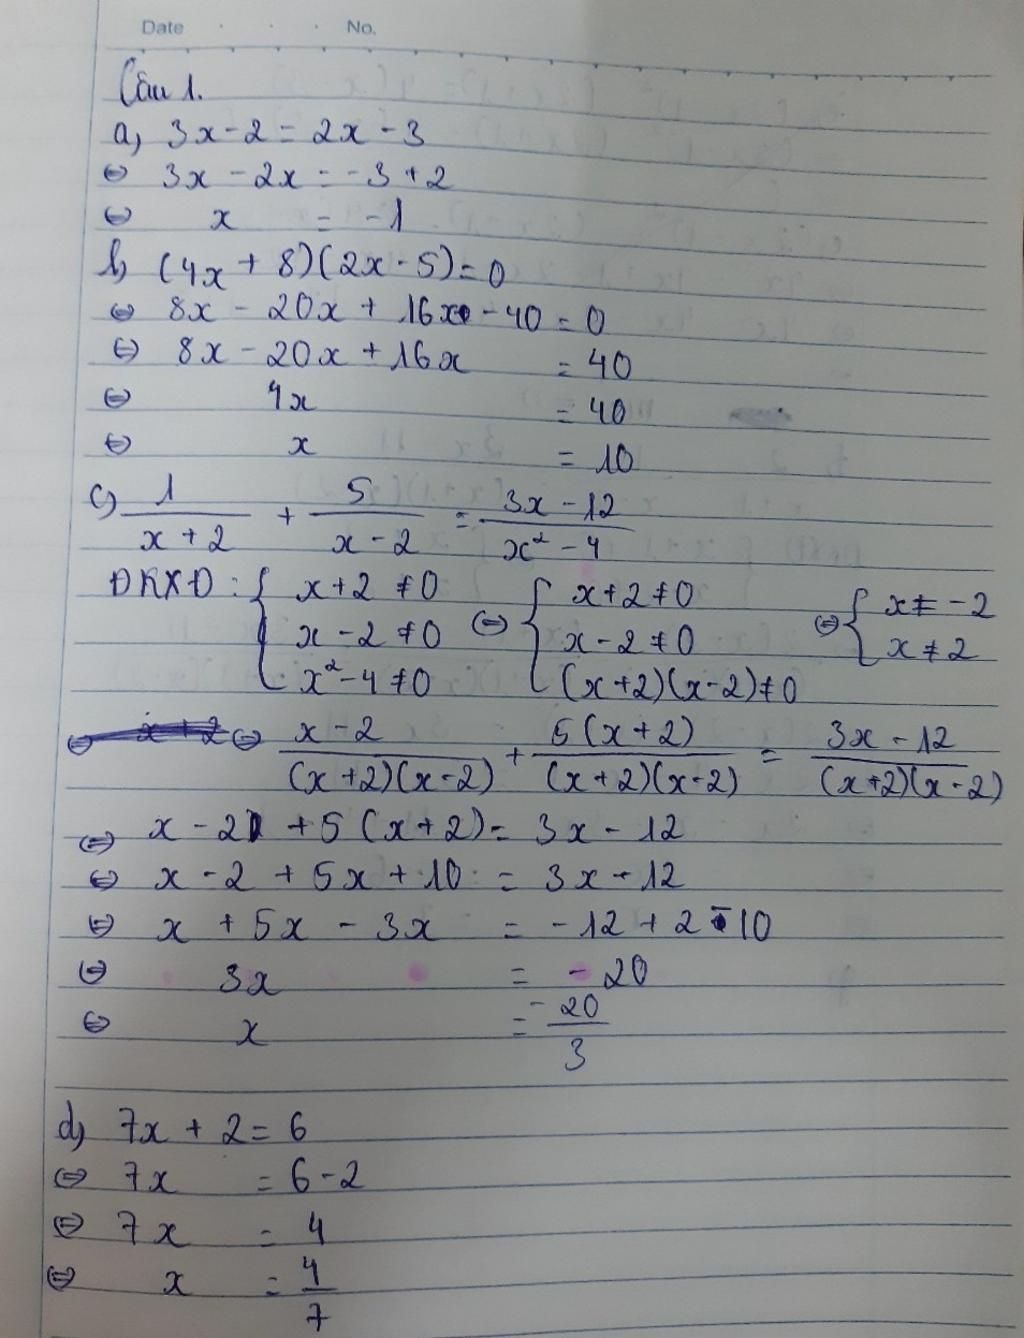 Date . . . No.
Câu 1.
a, 3x - 2 = 2x - 3
⇔ 3x - 2x = -3 + 2
⇔ x = -1
b, (4x + 8)(2x - 5) = 0
⇔ 8x - 20x + 16x - 40 = 0
⇔ 8x - 20x + 16x = 40
⇔ 4x = 40
⇔ x = 10
c, 1/(x + 2) + 5/(x - 2) = (3x - 12)/(x² - 4)
ĐKXĐ: { x + 2 ≠ 0 ⇔ { x + 2 ≠ 0 ⇔ { x ≠ -2
x - 2 ≠ 0 x - 2 ≠ 0 x ≠ 2
x² - 4 ≠ 0 (x + 2)(x - 2) ≠ 0
⇔ (x - 2)/((x + 2)(x - 2)) + 5(x + 2)/((x + 2)(x - 2)) = (3x - 12)/((x + 2)(x - 2))
⇔ x - 2 + 5(x + 2) = 3x - 12
⇔ x - 2 + 5x + 10 = 3x - 12
⇔ x + 5x - 3x = -12 + 2 - 10
⇔ 3x = -20
⇔ x = -20/3
d, 7x + 2 = 6
⇔ 7x = 6 - 2
⇔ 7x = 4
⇔ x = 4/7